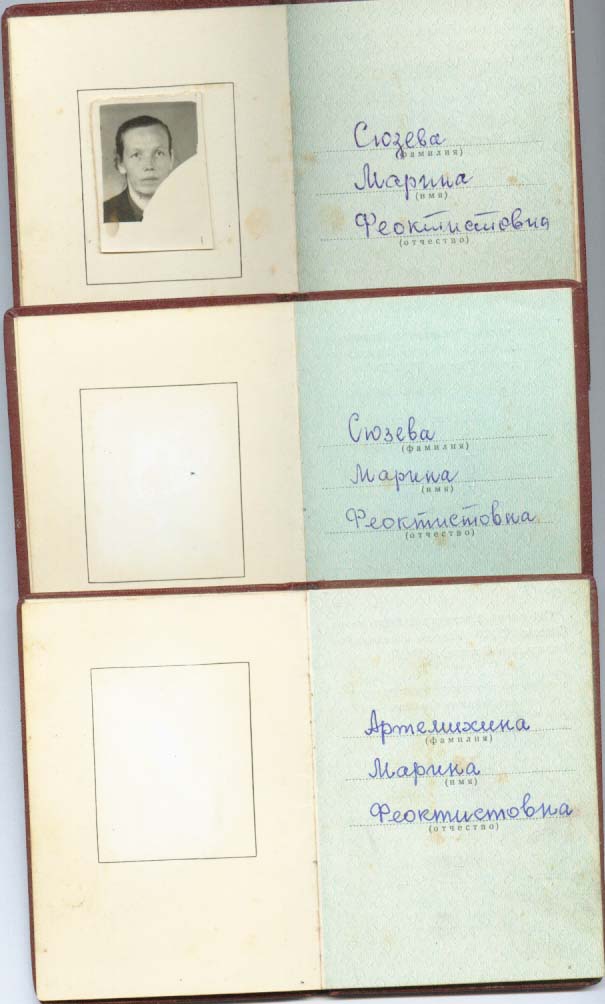 Сюзева
(фамилия)
Марина
(имя)
Феоктистовна
(отчество)
Сюзева
(фамилия)
Марина
(имя)
Феоктистовна
(отчество)
Артемихина
(фамилия)
Марина
(имя)
Феоктистовна
(отчество)